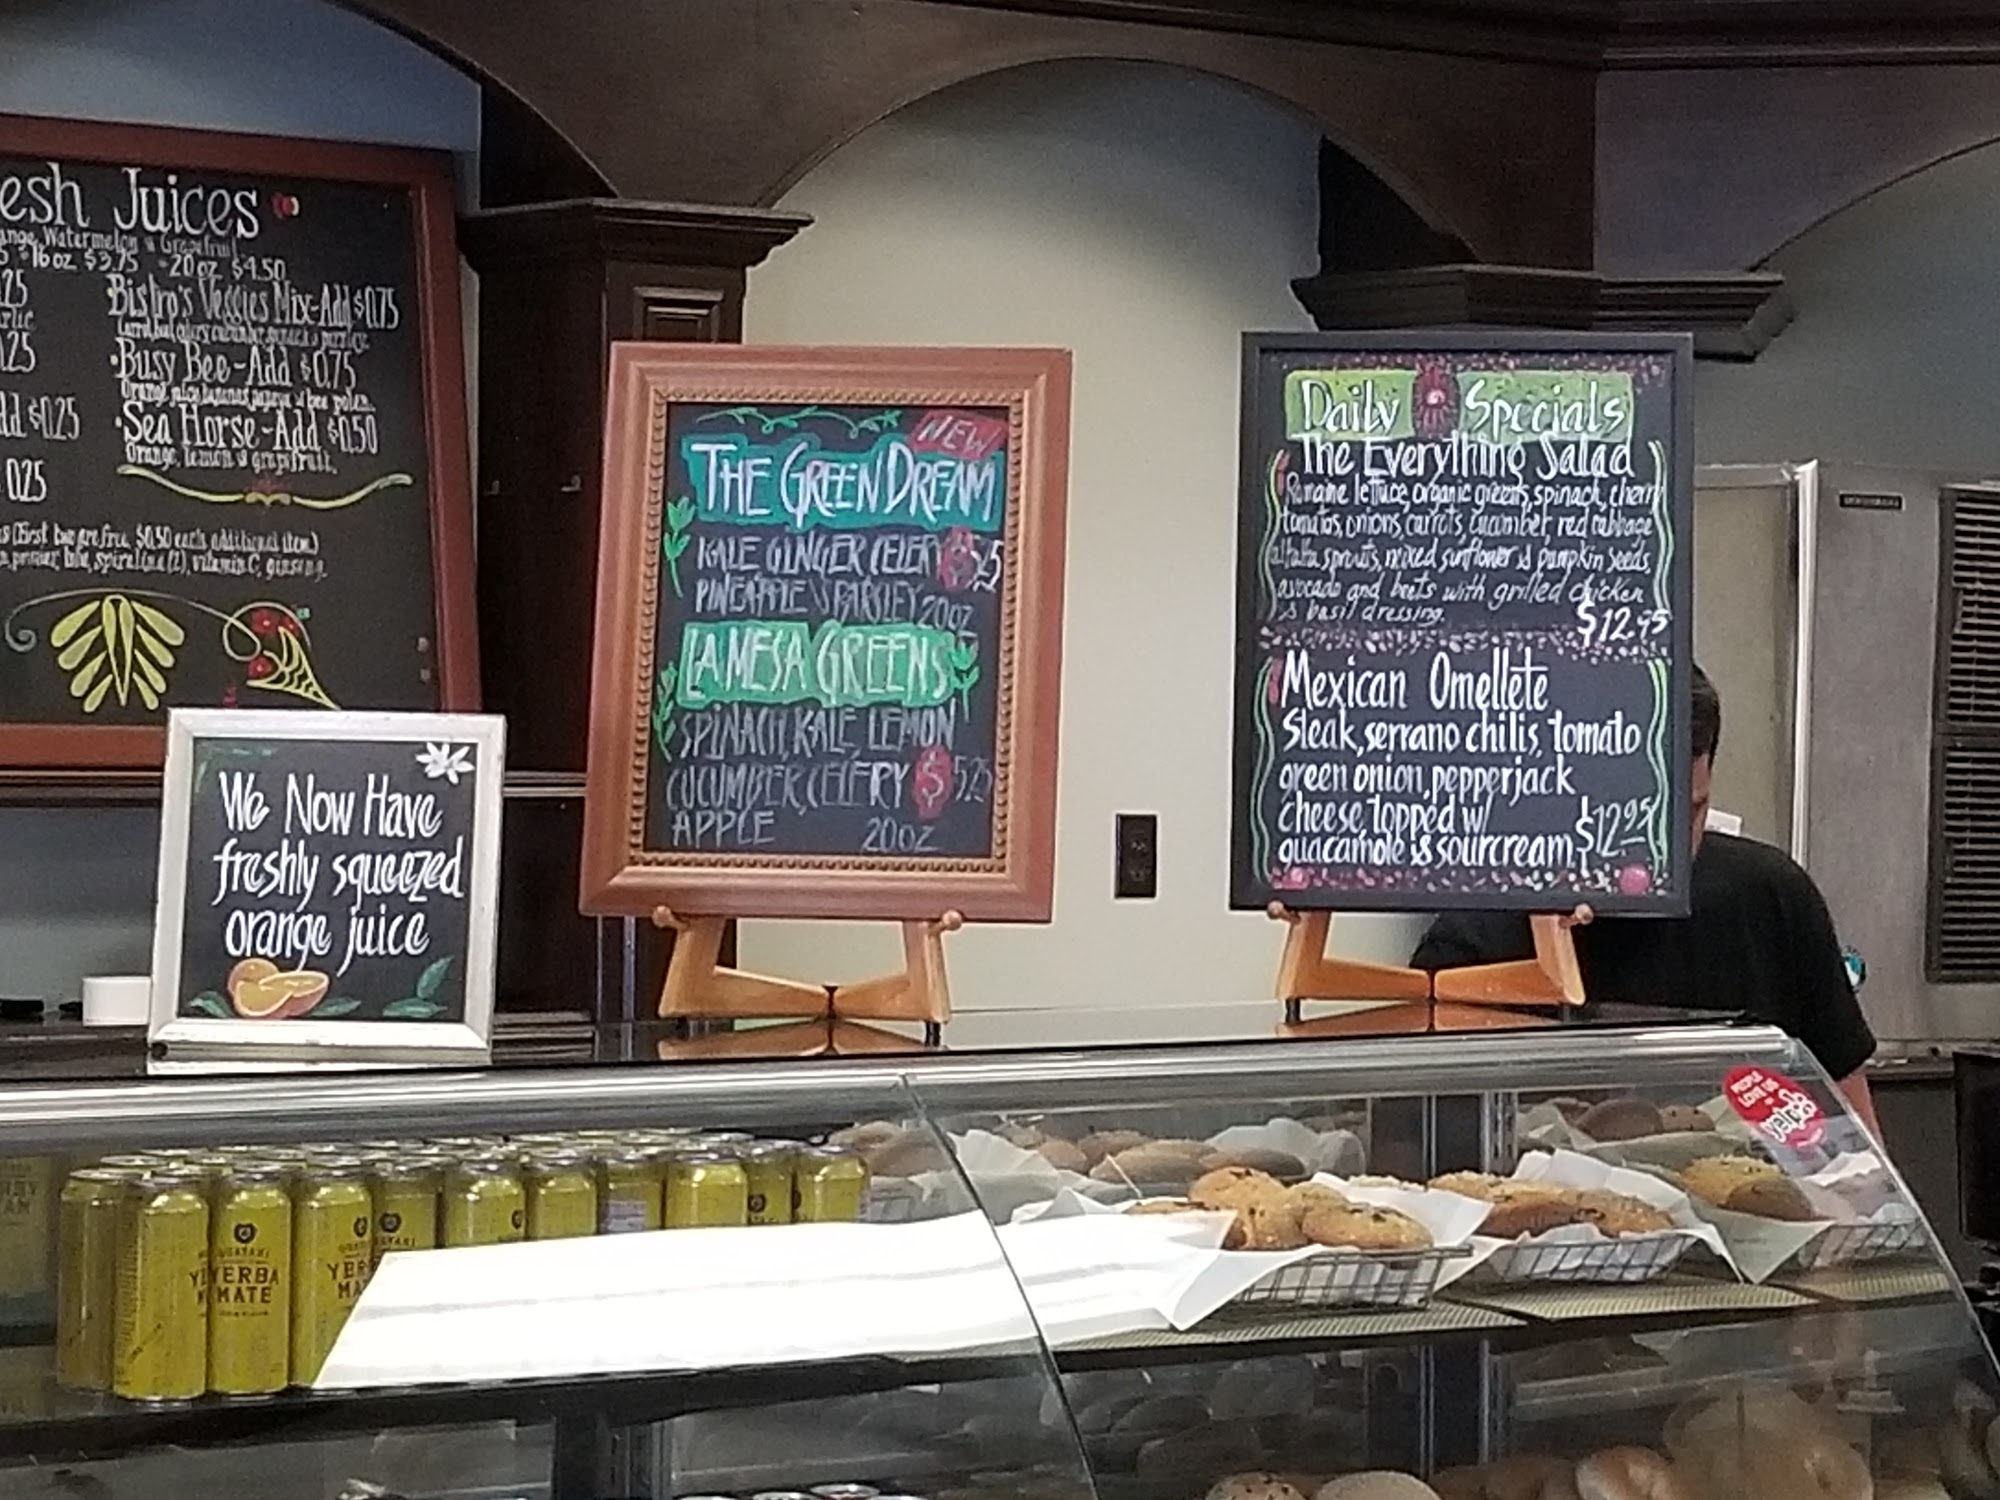 esh Juices
ange, Watermelon & Grapefruit
16oz $3.75 20oz $4.50
.25
Bistro's Veggies Mix-Add $0.75
Busy Bee-Add $0.75
Orange juice, bananas, papaya & bee polen.
dd $0.25
Sea Horse-Add $0.50
Orange, lemon & grapefruit.
0.25
(First two are free, $0.50 each additional item.)
spirulina (2), vitamin C, ginseng.
We Now Have
freshly squeezed
orange juice
NEW
THE GREEN DREAM
KALE GINGER CELERY
PINEAPPLE & PARSLEY 20oz
LA MESA GREENS
SPINACH, KALE, LEMON
CUCUMBER, CELERY $5.25
APPLE 20oz
Daily Specials
The Everything Salad
Romaine lettuce, organic greens, spinach, cherry
tomatos, onions, carrots, cucumber, red cabbage
alfalfa sprouts, mixed sunflower & pumpkin seeds,
avocado and beets with grilled chicken
& basil dressing.
$12.95
Mexican Omellete
Steak, serrano chilis, tomato
green onion, pepperjack
cheese, topped w/
guacamole & sourcream. $12.95
PEOPLE
LOVE US
yelp
GUAYAKI
YERBA
MATE